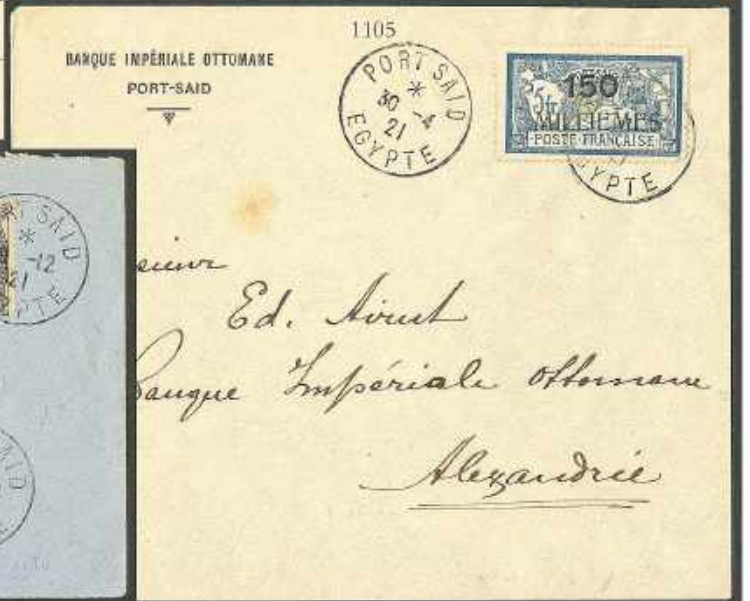 1105
BANQUE IMPÉRIALE OTTOMANE
PORT-SAID
PORT SAID
*
30 -4
21
EGYPTE
5f
150
MILLIEMES
POSTE FRANÇAISE
YPTE
SAID
*
-12
21
PTE
sieur
Ed.
Banque Impériale Ottomane
Alexandrie
AID